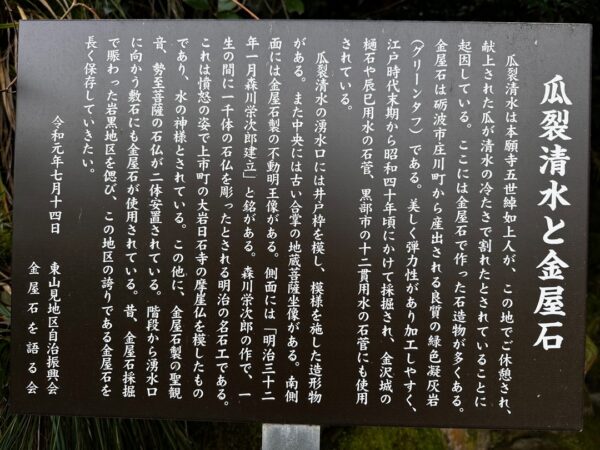 瓜裂清水と金屋石
瓜裂清水は本願寺五世綽如上人が、この地でご休憩され、
献上された瓜が清水の冷たさで割れたとされていることに
起因している。ここには金屋石で作った石造物が多くある。
金屋石は砺波市庄川町から産出される良質の緑色凝灰岩
(グリーンタフ)である。美しく弾力性があり加工しやすく、
江戸時代末期から昭和四十年頃にかけて採掘され、金沢城の
樋石や辰巳用水の石菅、黒部市の十二貫用水の石菅にも使用
されている。
瓜裂清水の湧水口には井戸枠を模し、模様を施した造形物
がある。また中央には古い合掌の地蔵菩薩坐像がある。南側
面には金屋石製の不動明王像がある。側面には「明治三十二
年一月森川栄次郎建立」と銘がある。森川栄次郎の作で、一
生の間に一千体の石仏を彫ったとされる明治の名石工である。
これは憤怒の姿で上市町の大岩日石寺の摩崖仏を模したもの
であり、水の神様とされている。この他に、金屋石製の聖観
音、勢至菩薩の石仏が二体安置されている。階段から湧水口
に向かう敷石にも金屋石が使用されている。昔、金屋石採掘
で賑わった岩黒地区を偲び、この地区の誇りである金屋石を
長く保存していきたい。
令和元年七月十四日
東山見地区自治振興会
金屋石を語る会